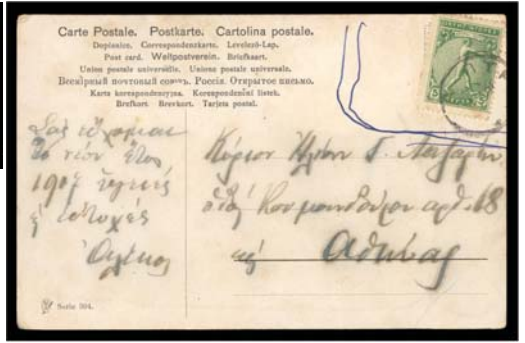 Carte Postale. Postkarte. Cartolina postale.
Dopisnice. Correspondenzkarte. Levelező-Lap.
Post card. Weltpostverein. Briefkaart.
Union postale universelle. Unione postale universale.
Всемiрный почтовый союзъ. Россiя. Открытое письмо.
Karta korespondencyjna. Korespondenční listek.
Brefkort. Brevkort. Tarjeta postal.
Σας εύχομαι
το νέον έτος
1907 υγιείς
ευτυχές
Κύριον Ηλίαν Γ.
οδός Κουμουνδούρου αρθ. 68
Αθήνας
Serie 304.